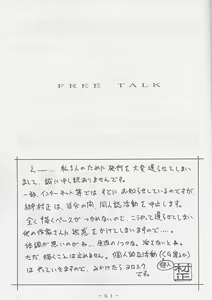 FREE TALK
えー… 私1人のために発行を大変遅らせてしまい
まして、誠に申し訳ありませんです。
一部、インターネット等ではすでにお知らせしているのですが
村正は、当分の間、同人誌活動を中止します。
全く描くペースがつかめないので、こうやって遅らせてしまい
他の作家さんに迷惑をかけてしまいますので…
体調が悪いのかぁ…、
ただ描くことは止めません。個人誌活動(CG集とか)
はやっていきますので、みかけたらヨロシク
です。
村正
-61-